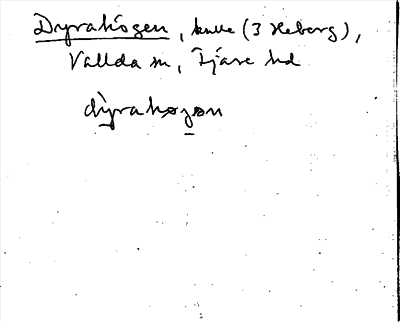 Dyrahögen, kulle (3 Heberg),
Vallda sn, Fjäre hd
dyrahøgøn